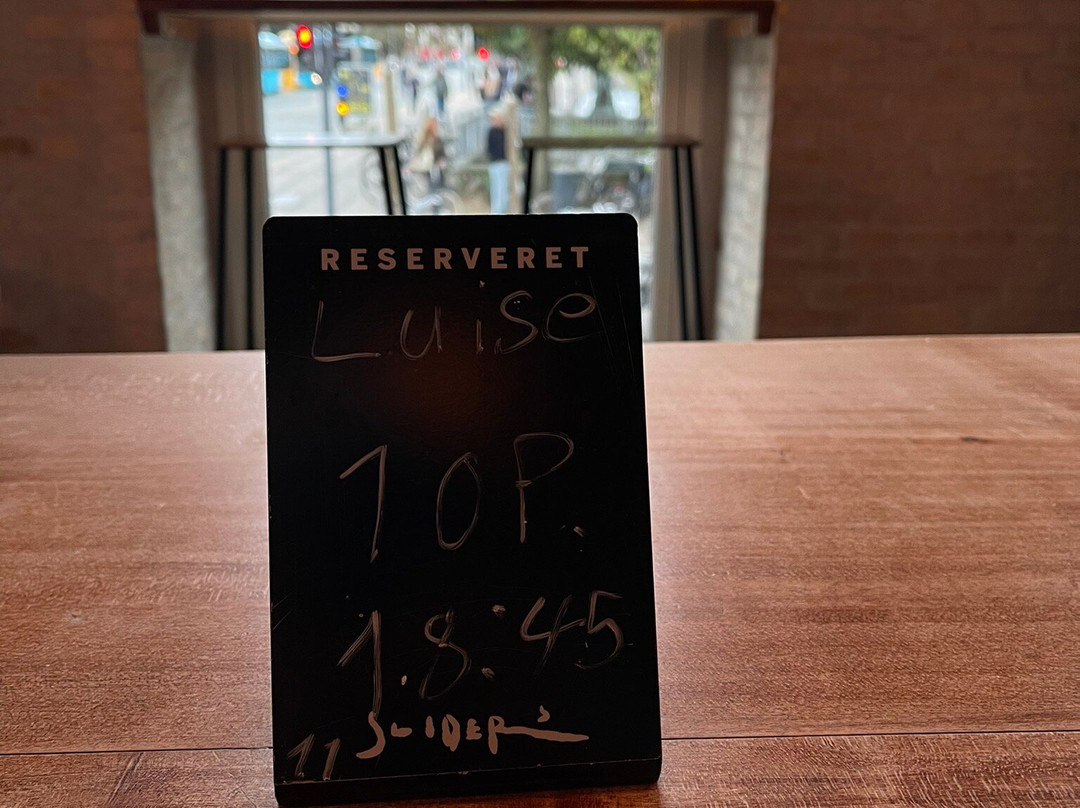 RESERVERET
Luise
10P.
18:45
SLIDER'S
11